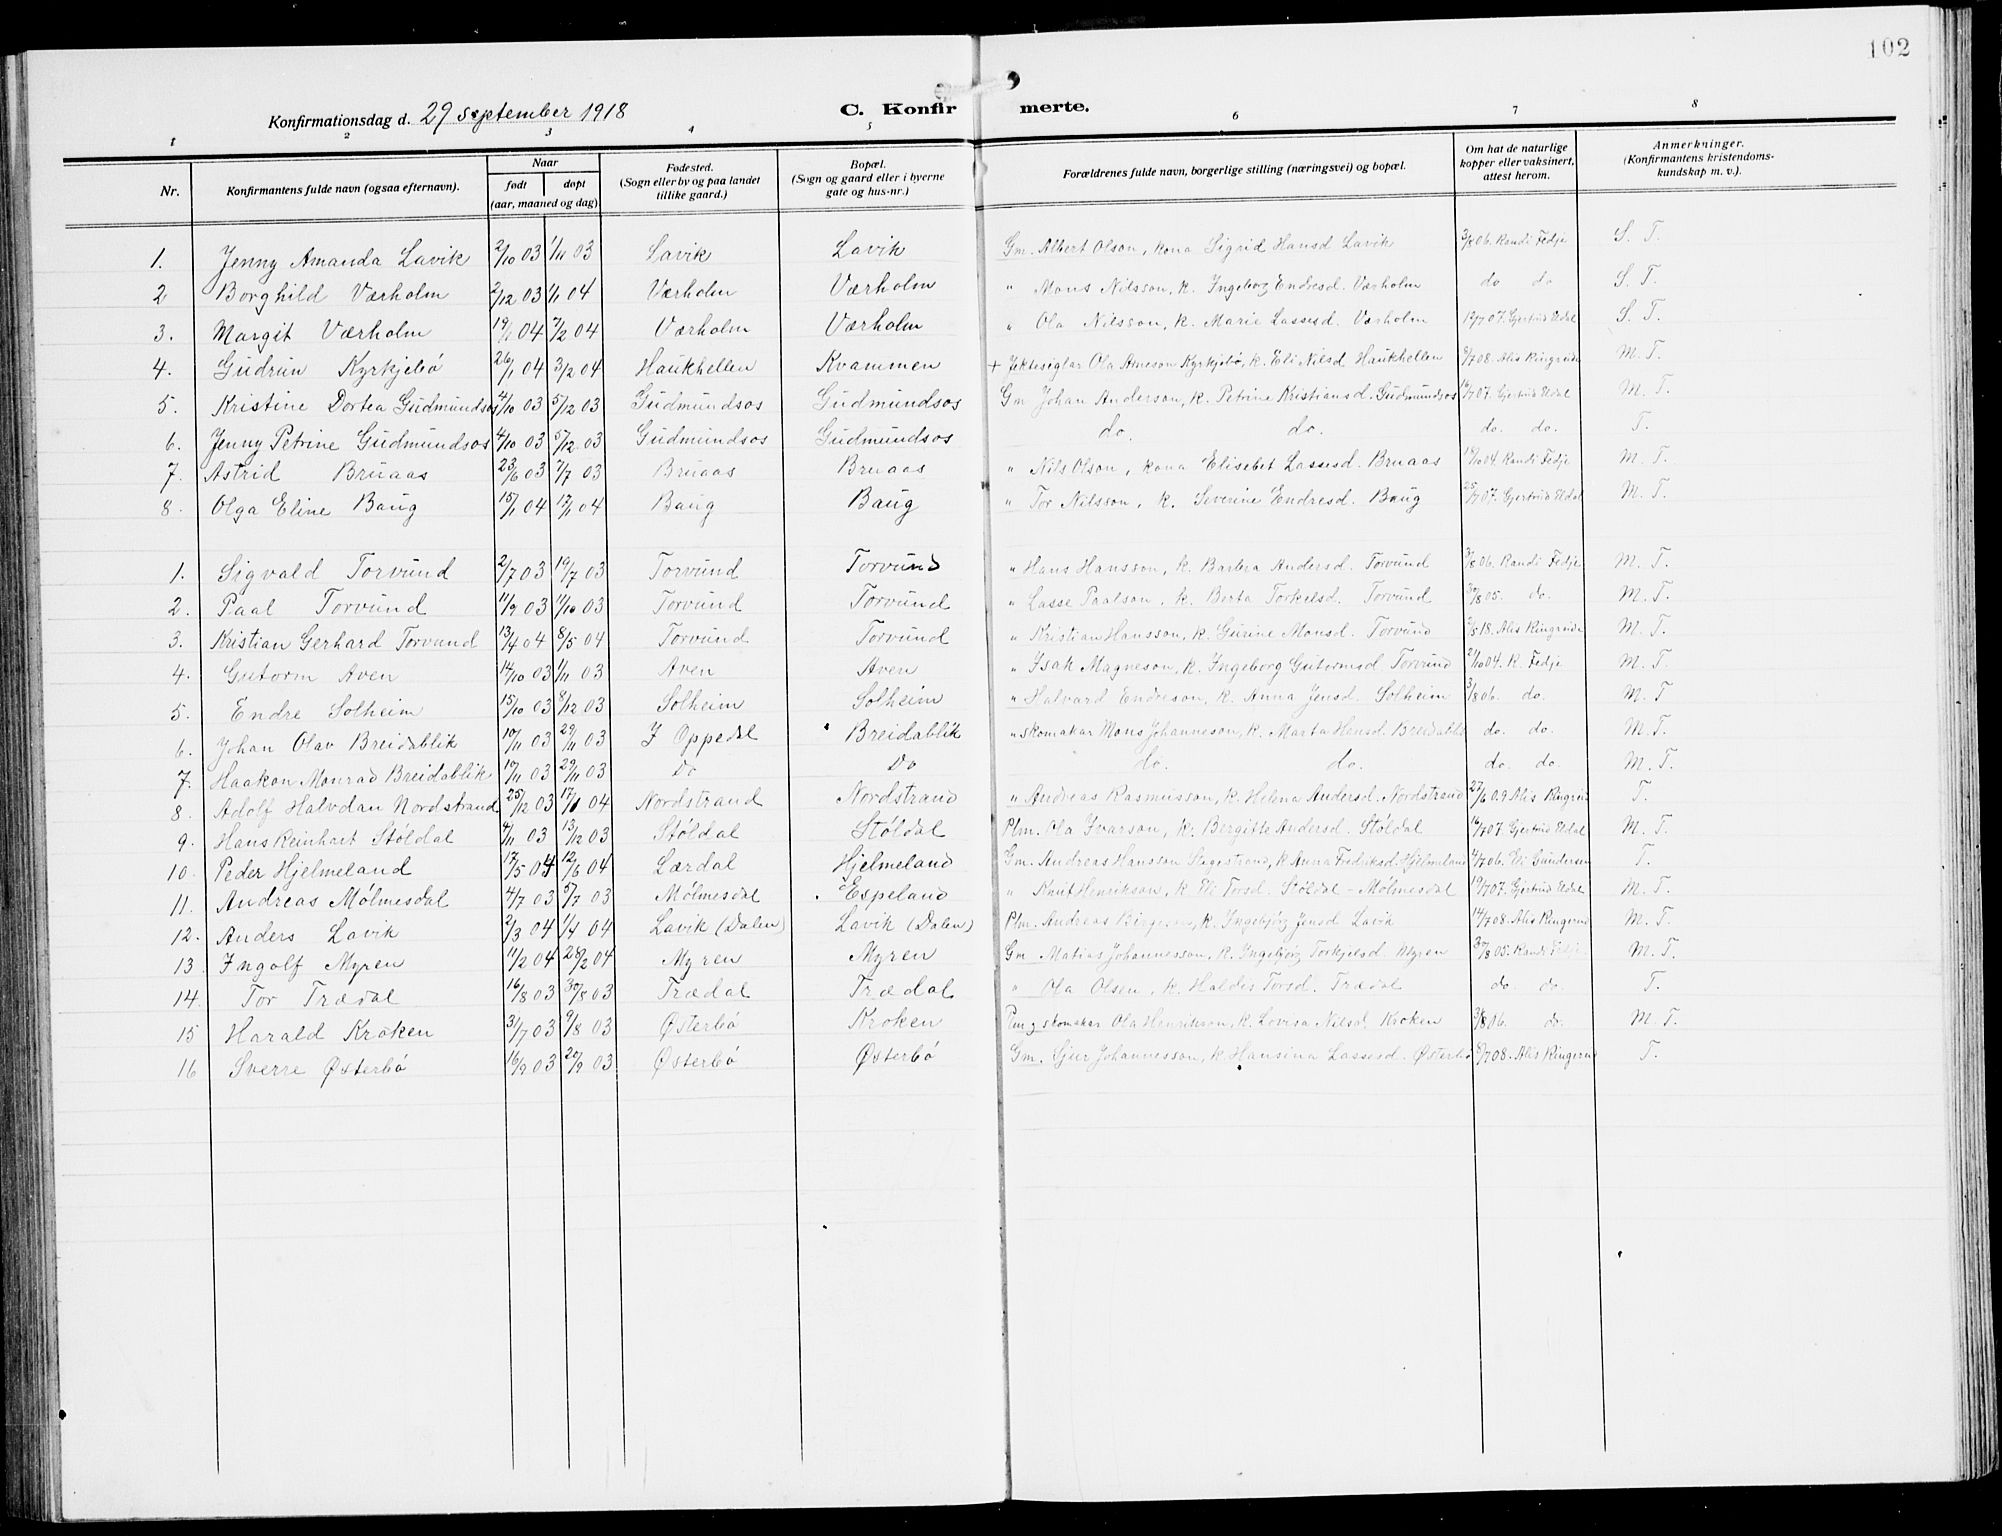 102
Konfirmationsdag d. 29 september 1918 C. Konfirmerte.
1 2 3 4 5 6 7 8
Nr. Konfirmantens fulde navn (ogsaa efternavn). Naar født døpt (aar, maaned og dag) Fødested. (Sogn eller by og paa landet tillike gaard.) Bopæl. (Sogn og gaard eller i byerne gate og hus-nr.) Forældrenes fulde navn, borgerlige stilling (næringsvei) og bopæl. Om hat de naturlige kopper eller vaksinert, attest herom. Anmerkninger. (Konfirmantens kristendoms-kundskap m. v.).
1. Jenny Amanda Lavik 2/10 03 1/11 03 Lavik Lavik Gm. Albert Olson, kona Sigrid Hansd Lavik 3/8 06. Randi Fedje S. T.
2 Borghild Værholm 2/12 03 1/1 04 Værholm Værholm " Mons Nilsson, k. Ingeborg Endresd. Værholm do do S. T.
3. Margit Værholm 19/1 04 7/2 04 Værholm Værholm " Ola Nilsson, k. Marie Lassesd. Værholm 19/7 07. Gjertrud Eldal S. T.
4. Gudrun Kyrkjebø 26/1 04 3/2 04 Haukhellen Kvammen + Jektesiglar Ola Arneson Kyrkjebø, k. Eli Nilsd Haukhellen 9/7 08. Alis Ringrude M. T.
5. Kristine Dortea Gudmundsos 4/10 03 5/12 03 Gudmundsos Gudmundsos Gm Johan Anderson, k. Petrine Kristiansd. Gudmundsos 16/7 07. Gjertrud Eldal M. T.
6. Jenny Petrine Gudmundsos 4/10 03 5/12 03 Gudmundsos Gudmundsos do. do. do. do. T.
7. Astrid Bruaas 23/6 03 7/7 03 Bruaas Bruaas " Nils Olson, kona Elisebet Lassesd. Bruaas 18/10 04. Randi Fedje M. T.
8. Olga Eline Baug 15/1 04 17/1 04 Baug Baug " Tor Nilsson, k. Severine Endresd. Baug 25/7 07. Gjertrud Eldal M. T.
1. Sigvald Torvund 2/7 03 19/7 03 Torvund Torvund " Hans Hansson, k. Barbra Andersd. Torvund 3/8 06. Randi Fedje M. T.
2. Paal Torvund 11/9 03 11/10 03 Torvund Torvund " Lasse Paalson, k. Berta Torkelsd. Torvund 30/8 05. do. M. T.
3. Kristian Gerhard Torvund 13/4 04 8/5 04 Torvund Torvund " Kristian Hansson, k. Gurine Monsd. Torvund 2/5 18. Alis Ringrude M. T.
4. Gutorm Aven 14/10 03 1/11 03 Aven Aven " Isak Magneson, k. Ingeborg Gutormsd. Torvund 21/10 04. R. Fedje M. T.
5. Endre Solheim 15/10 03 8/12 03 Solheim Solheim " Halvard Endreson, k. Anna Jensd. Solheim 3/8 06. do. M. T
6. Johan Olav Breidablik 10/11 03 29/11 03 I Oppedal Breidablik " skomakar Mons Johanneson, k. Marta Hansd. Breidablik do. do. M. T.
7. Haakon Monrad Breidablik 10/11 03 29/11 03 Do Do do. do. do. do. M. T.
8. Adolf Halvdan Nordstrand 25/12 03 17/1 04 Nordstrand Nordstrand " Andreas Rasmusson, k. Helena Andersd. Nordstrand 27/6 09 Alis Ringrud T.
9. Hans Reinhart Støldal 4/11 03 13/12 03 Støldal Støldal Plm. Ola Ivarson, k. Bergitte Andersd. Støldal 16/7 07. Gjertrud Eldal M. T.
10. Peder Hjelmeland 17/5 04 12/6 04 Lærdal Hjelmeland Gm. Andreas Hansson Stegestrand, k. Anna Fedriksd. Hjelmeland 4/7 06. Eli Gundersen T.
11. Andreas Mølmesdal 4/7 03 5/7 03 Mølmesdal Espeland " Knut Henrikson, k. Eli Torsd. Støldal - Mølmesdal 19/7 07. Gjertrud Eldal M. T.
12. Anders Lavik 2/3 04 1/4 04 Lavik (Dalen) Lavik (Dalen) Plm. Andreas k. Ingebjørg Jensd Lavik 14/7 08. Alis Ringrud M. T.
13. Ingolf Myren 11/2 04 28/2 04 Myren Myren Gm. Matias Johannesson, k. Ingebjørg Torkjelsd. Myren 30/8 05. Randi Fedje M. T.
14. Tor Trædal 16/8 03 30/8 03 Trædal Trædal " Ola Olsen, k. Haldis Torsd. Trædal do. do. T.
15 Harald Kroken 3/7 03 9/8 03 Østerbø Kroken Plm og skomakar Ola Henrikson, k. Lovisa Nilsd. Kroken 3/8 06. do. M. T.
16 Sverre Østerbø 16/9 03 20/9 03 Østerbø Østerbø Gm. Sjur Johannesson, k. Hansina Lassesd. Østerbø 9/7 08. Alis Ringerud T.